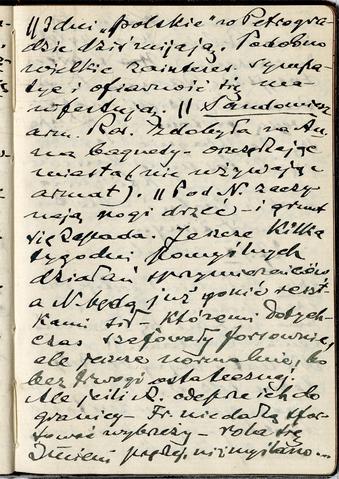 || 3 dni „polskie" w Petrogra-
dzie dziś mijają. Podobno
wielkie zainteres. sympa-
tye i ofiarność się ma-
nifestują. || Sandomierz
arm. Ros. zdobyła na Au.
na bagnety - oszczędzając
miasta (nie używając
armat). || Pod N. zaczy-
nają nogi drżeć - i grunt
się zapada. Jeszcze kilka
tygodni pomyślnych
działań sprzymierzeńców
a N. będą już gonić reszt-
kami sił - któremi dotych-
czas szafowały forsownie,
ale jeszcze normalnie, bo
bez trwogi ostatecznej.
Ale jeśli R. odeprze ich do
granicy - Fr. nie dadzą
wybrzeży - rola się
zmieni prędzej niż myślano...